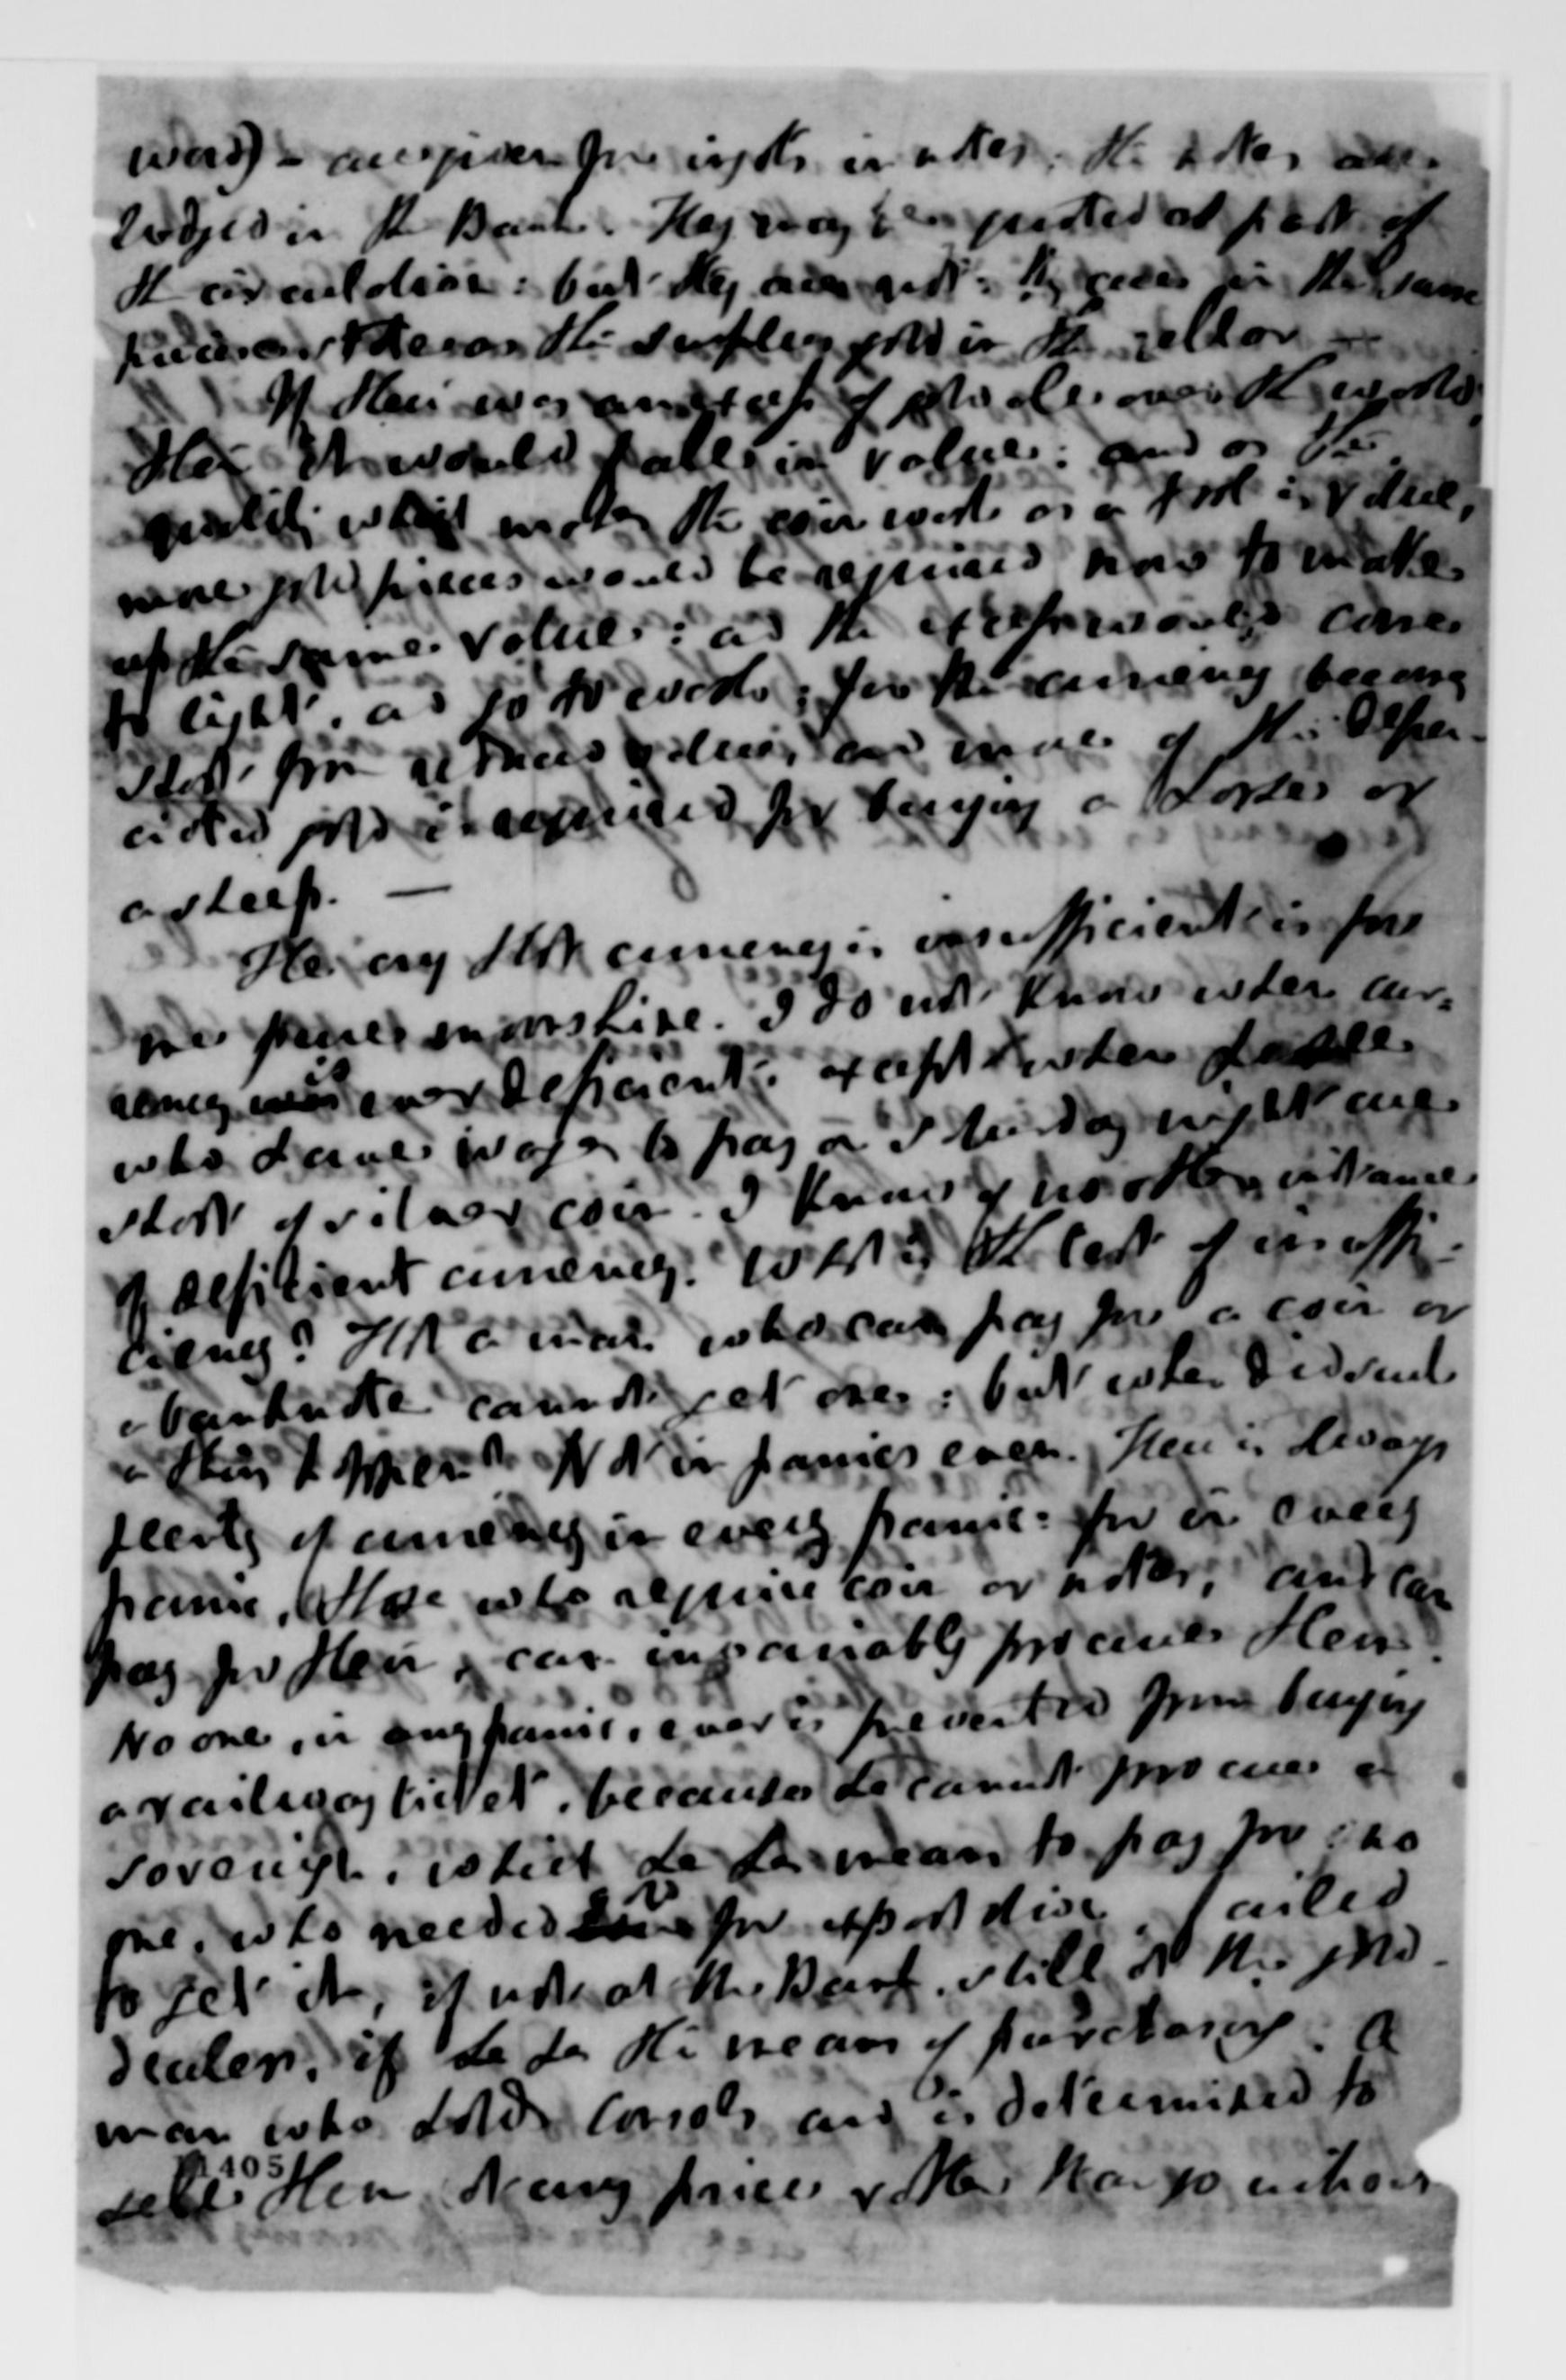 word) – are given for ingots in notes. The notes are
lodged in the Bank. They may be quoted as part of
the circulation: but they are not: they are in the same
the surplus gold in the cellar —
If there was an excess of gold all over the world,
then it would fall in value: and as the
quality which makes the coin work as a tool is value,
more gold pieces would be required now to make
up the same value: and the excess would come
to light, and go to work; for the currency being
short from reduced value, and more of the depre-
ciated gold is required for buying a horse or
a sheep. —
The cry that currency is insufficient is for
me pure moonshine. I do not know when cur-
rency is ever deficient: except when people
who have wages to pay on Saturday night are
short of silver coin. I know of no other instance
of deficient currency. What is the test of insuffi-
ciency? That a man who can pay for a coin or
a banknote cannot get one: but when did such
a thing happen? Not in panics even. There is always
plenty of currency in every panic: for in every
panic, those who require coin or notes, and can
pay for them, can invariably procure them.
No one, in any panic, ever is prevented from buying
a railway ticket, because he cannot procure a
sovereign, which he has means to pay for: no
one, who needed for exportation, failed
to get it, if not at the Bank, still at the gold
dealers, if he has the means of purchasing. A
man who holds Consols and is determined to
sell them at any price rather than go without
405